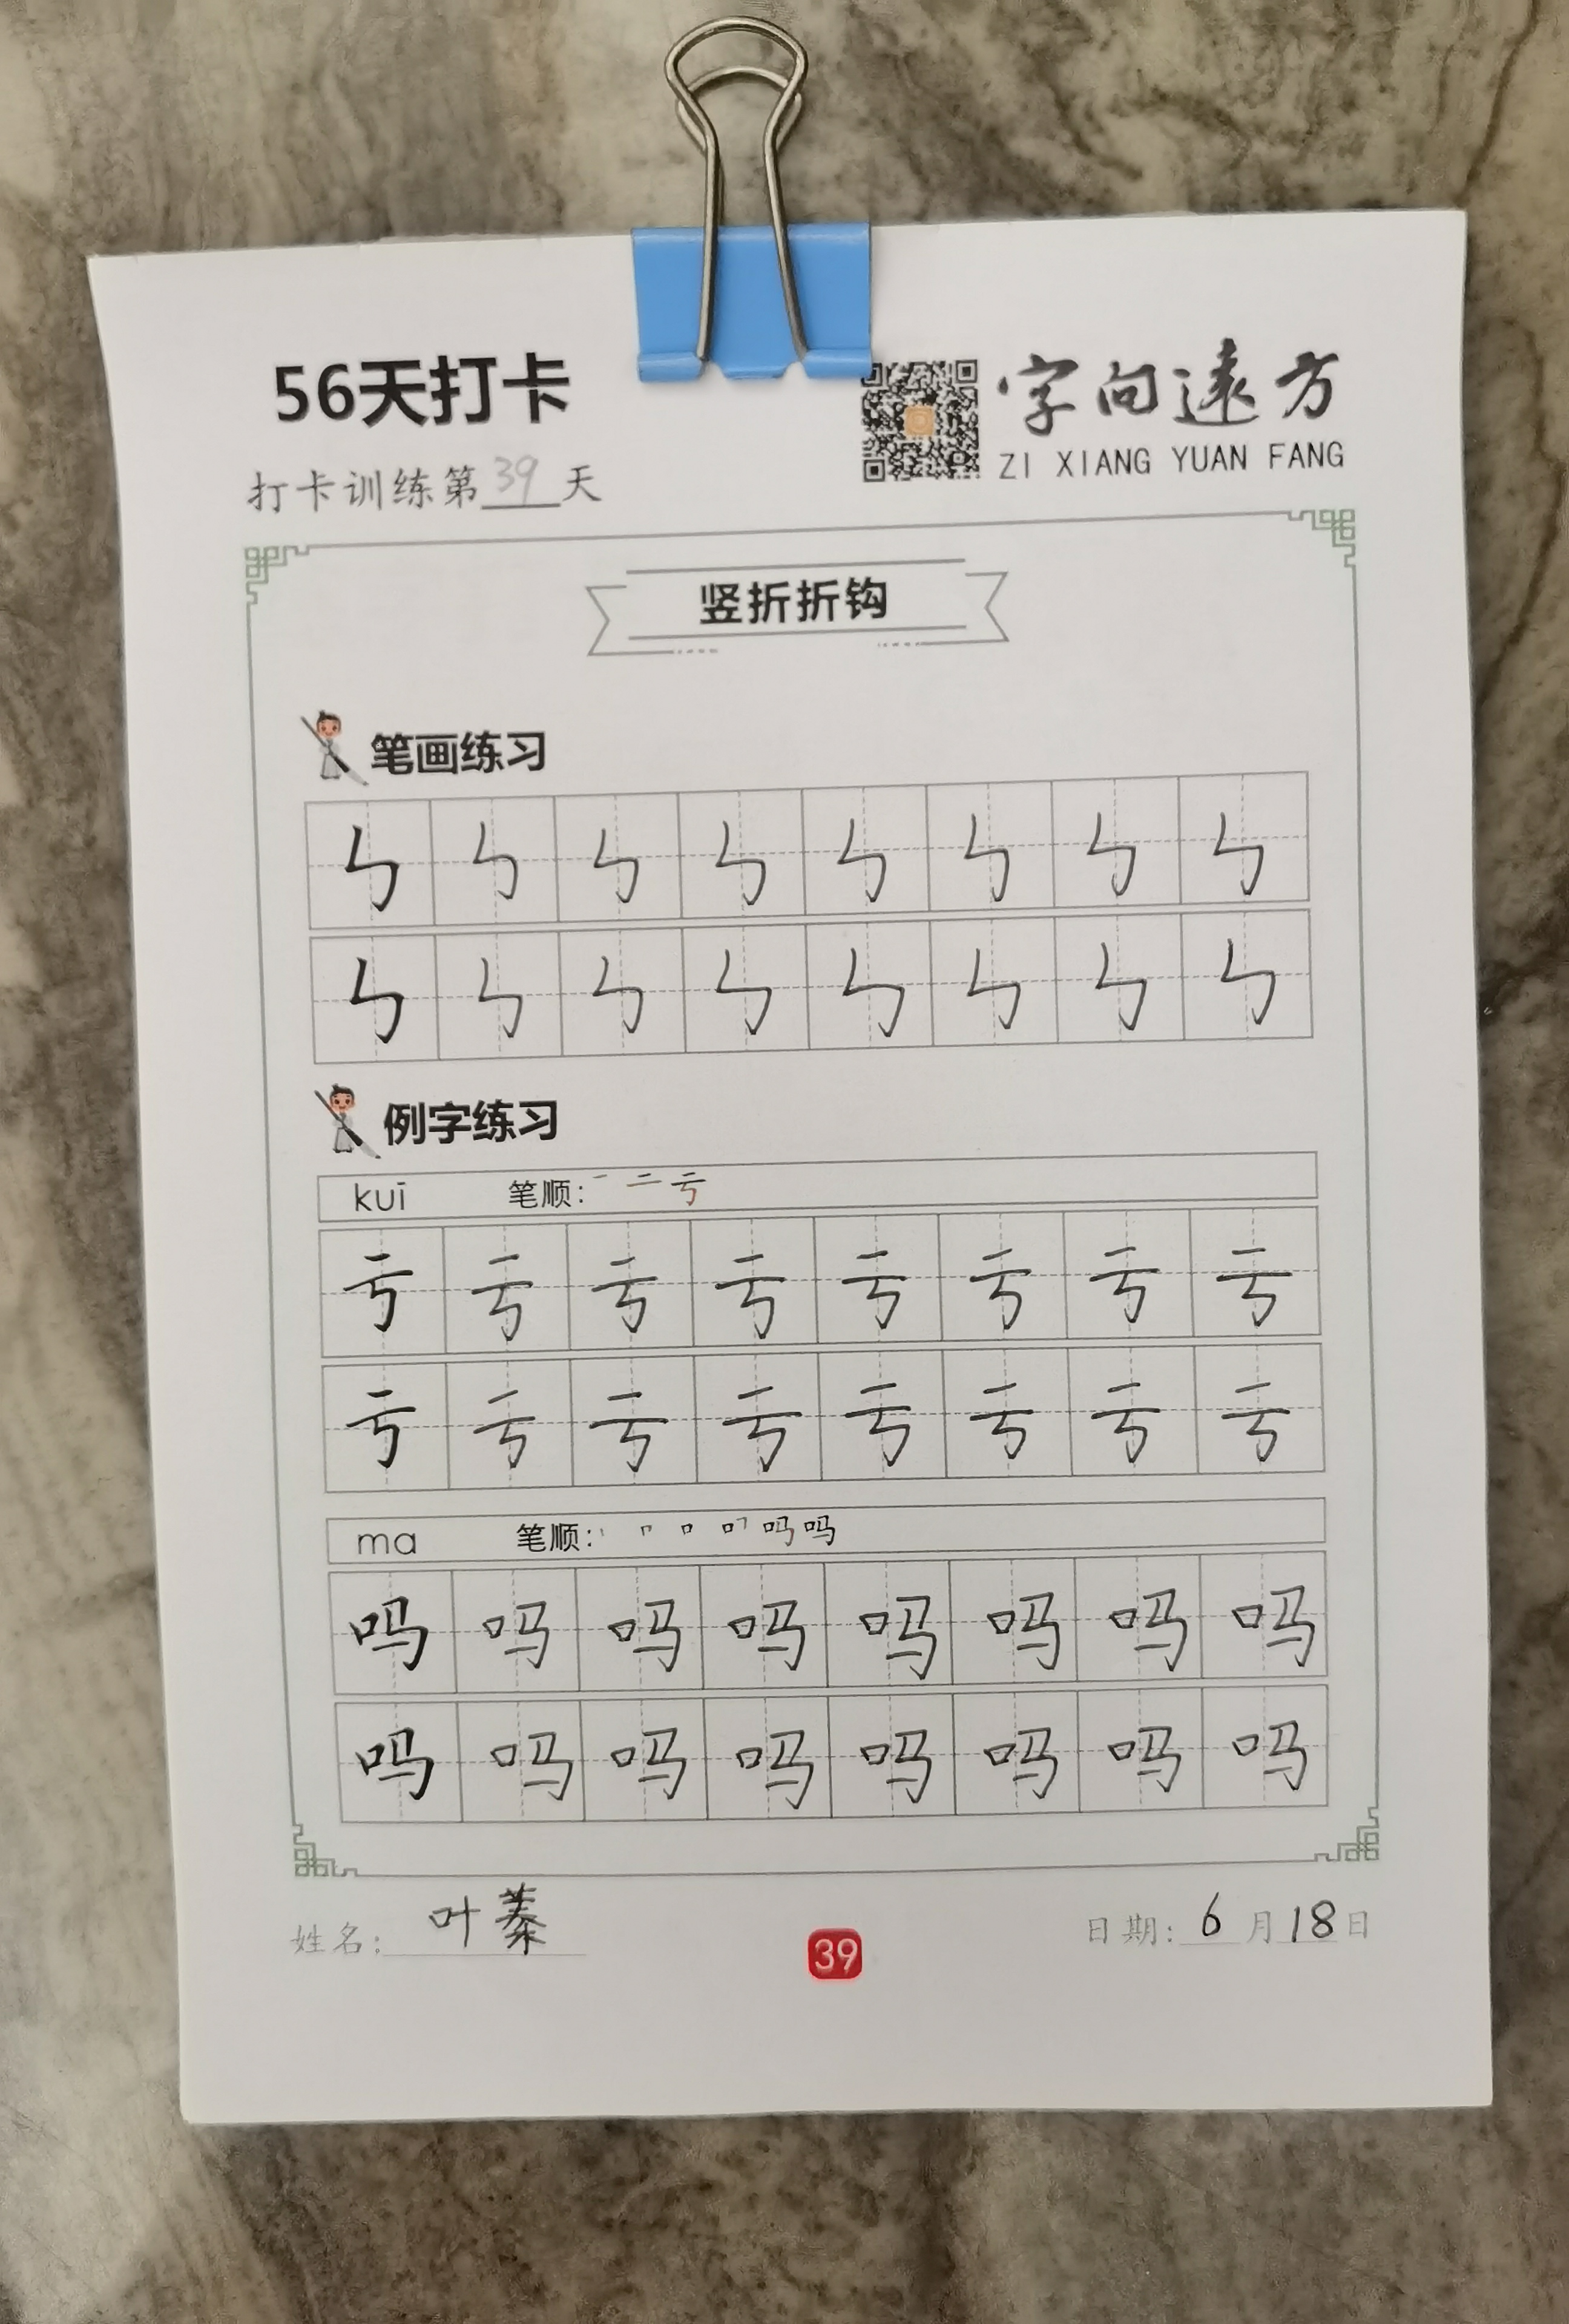 56天打卡
字向遠方
ZI XIANG YUAN FANG
打卡训练第39天
竖折折钩
笔画练习
ㄣ ㄣ ㄣ ㄣ ㄣ ㄣ ㄣ ㄣ
ㄣ ㄣ ㄣ ㄣ ㄣ ㄣ ㄣ ㄣ
例字练习
kuī 笔顺: 一 二 亏
亏 亏 亏 亏 亏 亏 亏 亏
亏 亏 亏 亏 亏 亏 亏 亏
ma 笔顺: 丨 冂 口 吗 吗
吗 吗 吗 吗 吗 吗 吗 吗
吗 吗 吗 吗 吗 吗 吗 吗
姓名: 叶蓁
39
日期: 6月18日